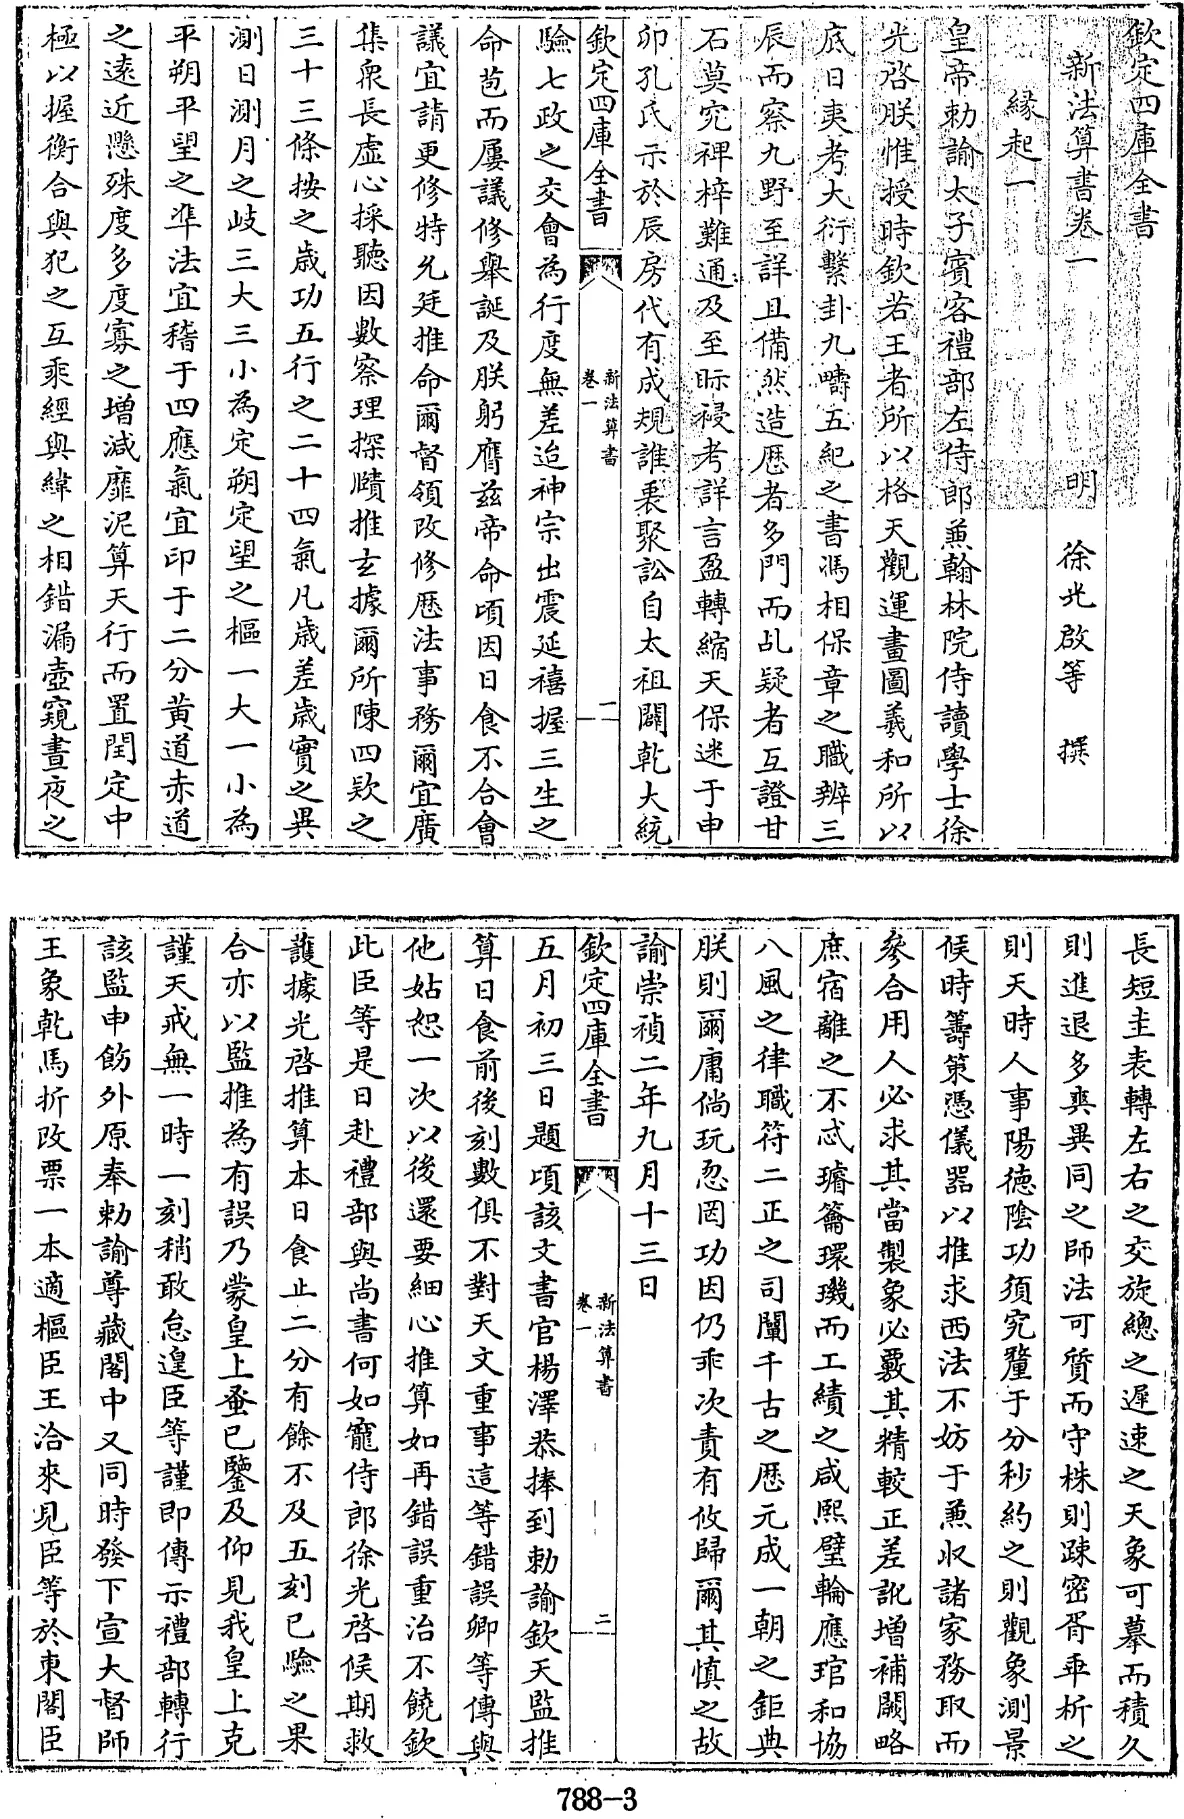 欽定四庫全書
新法算書卷一 明 徐光啟等 撰
緣起一
皇帝勅諭太子賓客禮部左侍郎兼翰林院侍讀學士徐
光啓朕惟授時欽若王者所以格天觀運畫圖羲和所以
底日夷考大衍繫卦九疇五紀之書馮相保章之職辨三
辰而察九野至詳且備然造歴者多門而乩疑者互證甘
石莫究裨梓難通及至眎祲考詳言盈轉縮天保迷于申
卯孔氏示於辰房代有成規誰裹聚訟自太祖闢乾大統
欽定四庫全書
新法算書
卷一
一
驗七政之交會為行度無差迨神宗出震延禧握三生之
命苞而屢議修舉誕及朕躬膺兹帝命頃因日食不合會
議宜請更修特允廷推命爾督領改修歴法事務爾宜廣
集衆長虛心採聽因數察理探賾推玄據爾所陳四欵之
三十三條按之歳功五行之二十四氣凡歳差歳實之異
測日測月之岐三大三小為定朔定望之樞一大一小為
平朔平望之凖法宜稽于四應氣宜印于二分黄道赤道
之遠近懸殊度多度寡之增減靡泥算天行而置閏定中
極以握衡合與犯之互乘經與緯之相錯漏壺窺晝夜之
長短圭表轉左右之交旋總之遲速之天象可摹而積久
則進退多爽異同之師法可質而守株則踈密胥乖析之
則天時人事陽德隂功須究釐于分秒約之則觀象測景
候時籌策憑儀器以推求西法不妨于兼收諸家務取而
參合用人必求其當製象必覈其精較正差訛增補闕略
庶宿離之不忒璿籥環璣而工績之咸熙璧輪應琯和協
八風之律職符二正之司闡千古之歴元成一朝之鉅典
朕則爾庸倘玩忽罔功因仍乖次責有攸歸爾其慎之故
諭崇禎二年九月十三日
欽定四庫全書
新法算書
卷一
二
五月初三日題頃該文書官楊澤恭捧到勅諭欽天監推
算日食前後刻數俱不對天文重事這等錯誤卿等傳與
他姑恕一次以後還要細心推算如再錯誤重治不饒欽
此臣等是日赴禮部與尚書何如寵侍郎徐光啓候期救
護據光啓推算本日食止二分有餘不及五刻已驗之果
合亦以監推為有誤乃蒙皇上蚤已鑒及仰見我皇上克
謹天戒無一時一刻稍敢怠遑臣等謹即傳示禮部轉行
該監申飭外原奉勅諭尊藏閣中又同時發下宣大督師
王象乾馬折改票一本適樞臣王洽來見臣等於東閣臣
788-3